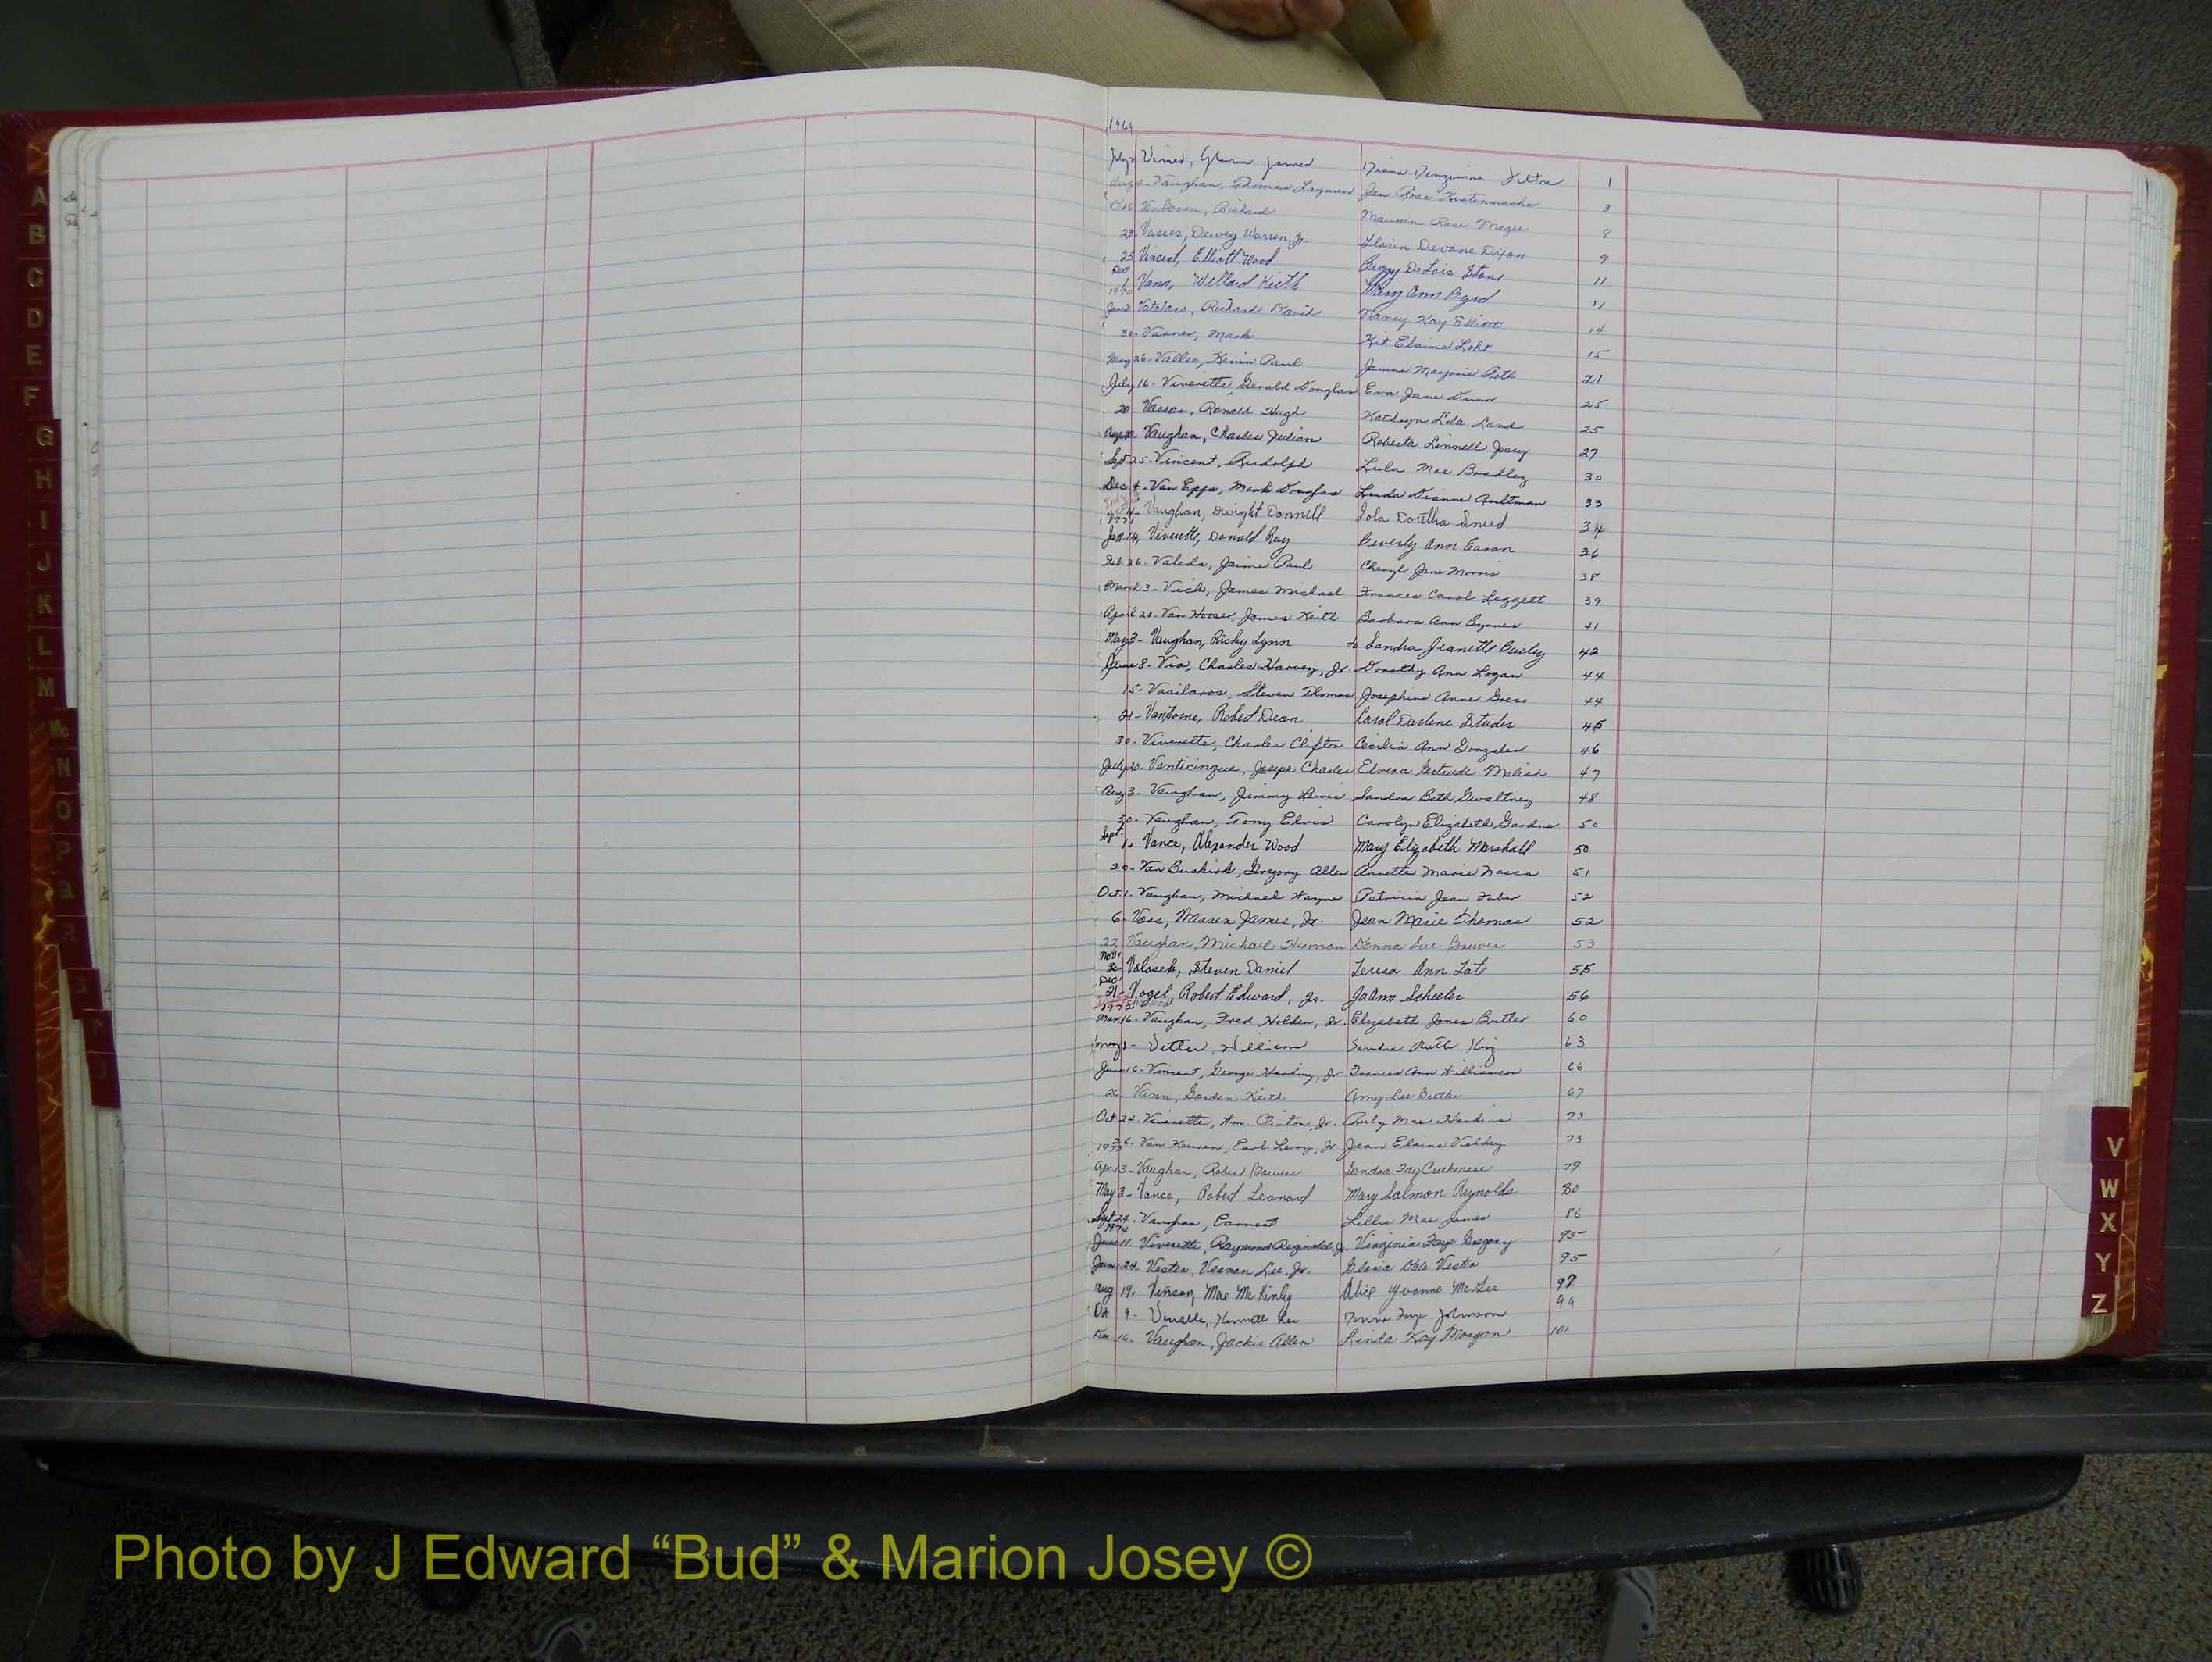 A
B
C
D
E
F
G
H
I
J
K
L
M
Mc
N
O
P
R
S
1969
July Vines, Glenn James Diana 1
Aug Vaughan, Thomas Layman Jen Rose 3
Richard Maureen Rose Magee 8
23 Vasser, Dewey Warren, Jr. Devane Dixon 9
25 Vincent, Elliott Wood Peggy DeLois Stone 11
Dec 1 Vann, Willard Keith Mary Ann Byrd 11
1970
Jan 2 Richard David Nancy Kay Elliott 14
30- Varner, Mark Kit Elaine 15
May 26- Vallee, Kevin Paul Janine Marjorie Roth 21
July 16- Viverette, Gerald Douglas Eva Jane Dunn 25
20- Vassar, Ronald Hugh Kathryn Lila Land 25
Aug 20- Vaughan, Charles Julian Roberta Linnell 27
Sept 25- Vincent, Rudolph Lula Mae Bradley 30
Dec 4- Van Epps, Mark Douglas Linda Dianne Aultman 33
Vaughan, Dwight Donnell Iola Doretha Sneed 34
1971
Jan 14, Viverette, Donald Ray Beverly Ann Eason 36
Feb. 26- Jaime Paul Cheryl Jane Morris 38
March 3- Vick, James Michael Frances Carol Leggett 39
April 20- Van Hooser, James Keith Barbara Ann Byrnes 41
May 3- Vaughan, Ricky Lynn to Sandra Jeanette Bailey 42
June 8- Via, Charles Harvey, Jr. Dorothy Ann Logan 44
15- Vasilaros, Steven Thomas Josephine Anne 44
21- VanHorne, Robert Dean Carol Darlene Studer 45
30- Viverette, Charles Clifton Cecilia Ann Gonzales 46
July 20- Venticinque, Joseph Charles Gertrude 47
Aug 3- Vaughan, Jimmy Lewis Sandra Beth Gwaltney 48
30- Vaughan, Tony Elvis Carolyn Elizabeth Gardner 50
Sept. 1- Vance, Alexander Wood Mary Elizabeth Marshall 50
20- Van Buskirk, Gregory Allen Annette Marie 51
Oct 1- Vaughan, Michael Wayne Patricia Jean Faber 52
6- Voss, Warren James, Jr. Jean Marie Thomas 52
22 Vaughan, Michael Herman Donna Sue Brewer 53
Nov. 30- Volosek, Steven Daniel Teresa Ann 55
Dec. 21- Vogel, Robert Edward, Jr. JoAnn Scheeler 56
1972
Mar. 16- Vaughan, Fred Holden, Jr. Elizabeth Jones Butler 60
May 8- Vetter, William Sandra Ruth King 63
June 16- Vincent, George Harding, Jr Frances Ann Williamson 66
26 Vann, Gordon Keith Amy Lee Butler 67
Oct 24- Viverette, Wm. Clinton, Jr. Ruby Mae Hawkins 73
26- Van Earl Leroy, Jr Jean Elaine 73
1973
Apr. 13- Vaughan, Robert Bowers Sandra Fay 79
May 3- Vance, Robert Leonard Mary Salmon Reynolds 80
Sept 24- Vaughan, Earnest Lillie Mae James 86
1974
June 11- Viverette, Raymond Reginald, Jr. Virginia Faye Gregory 95
June 24- Vester, Vernon Lee, Jr. Gloria Dale Vester 95
Aug 19, Vinson, Mae McKinley Alice Yvonne McGee 97
Oct 9- Kenneth Lee Faye Johnson 99
Dec 16- Vaughan, Jackie Allen Linda Kay Morgan 101
V
W
X
Y
Z
Photo by J Edward “Bud” & Marion Josey ©